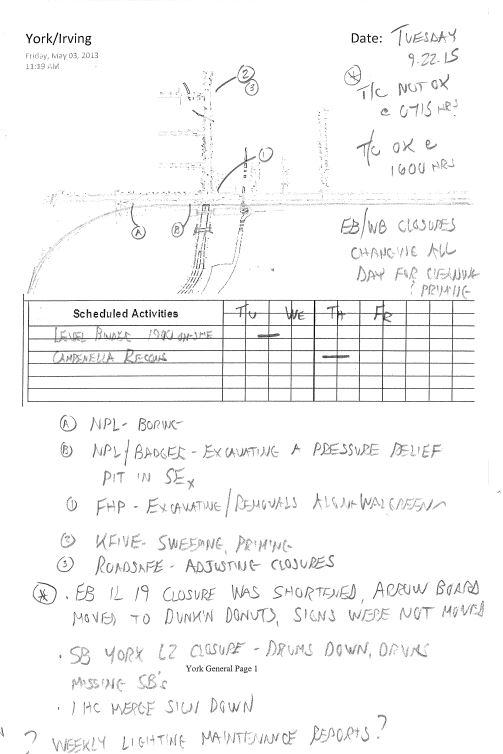 York/Irving
Date: TUESDAY
Friday, May 03, 2013
11:19 AM
9-22-15
* T/C NOT OK
@ 0715 HRS
T/C OK @
1600 HRS
2
3
1
A
B
EB/WB CLOSURES
CHANGING ALL
DAY FOR CLEANING
? PRIMING
Scheduled Activities TU WE TH FR
LEVEL BINDER
CAMPENELLA
A NPL- BORING
B NPL/BADGER - EXCAVATING A PRESSURE RELIEF
PIT IN SEx
1 FHP - EXCAVATING/REMOVALS ALONG WALGREENS
2 KFIVE- SWEEPING, PRIMING
3 ROADSAFE - ADJUSTING CLOSURES
* . EB IL 19 CLOSURE WAS SHORTENED, ARROW BOARD
MOVED TO DUNK'N DONUTS, SIGNS WERE NOT MOVED
. SB YORK L2 CLOSURE - DRUMS DOWN, DRUMS
York General Page 1
MISSING SB's
. 1 HC MERGE SIGN DOWN
? WEEKLY LIGHTING MAINTENANCE REPORTS?